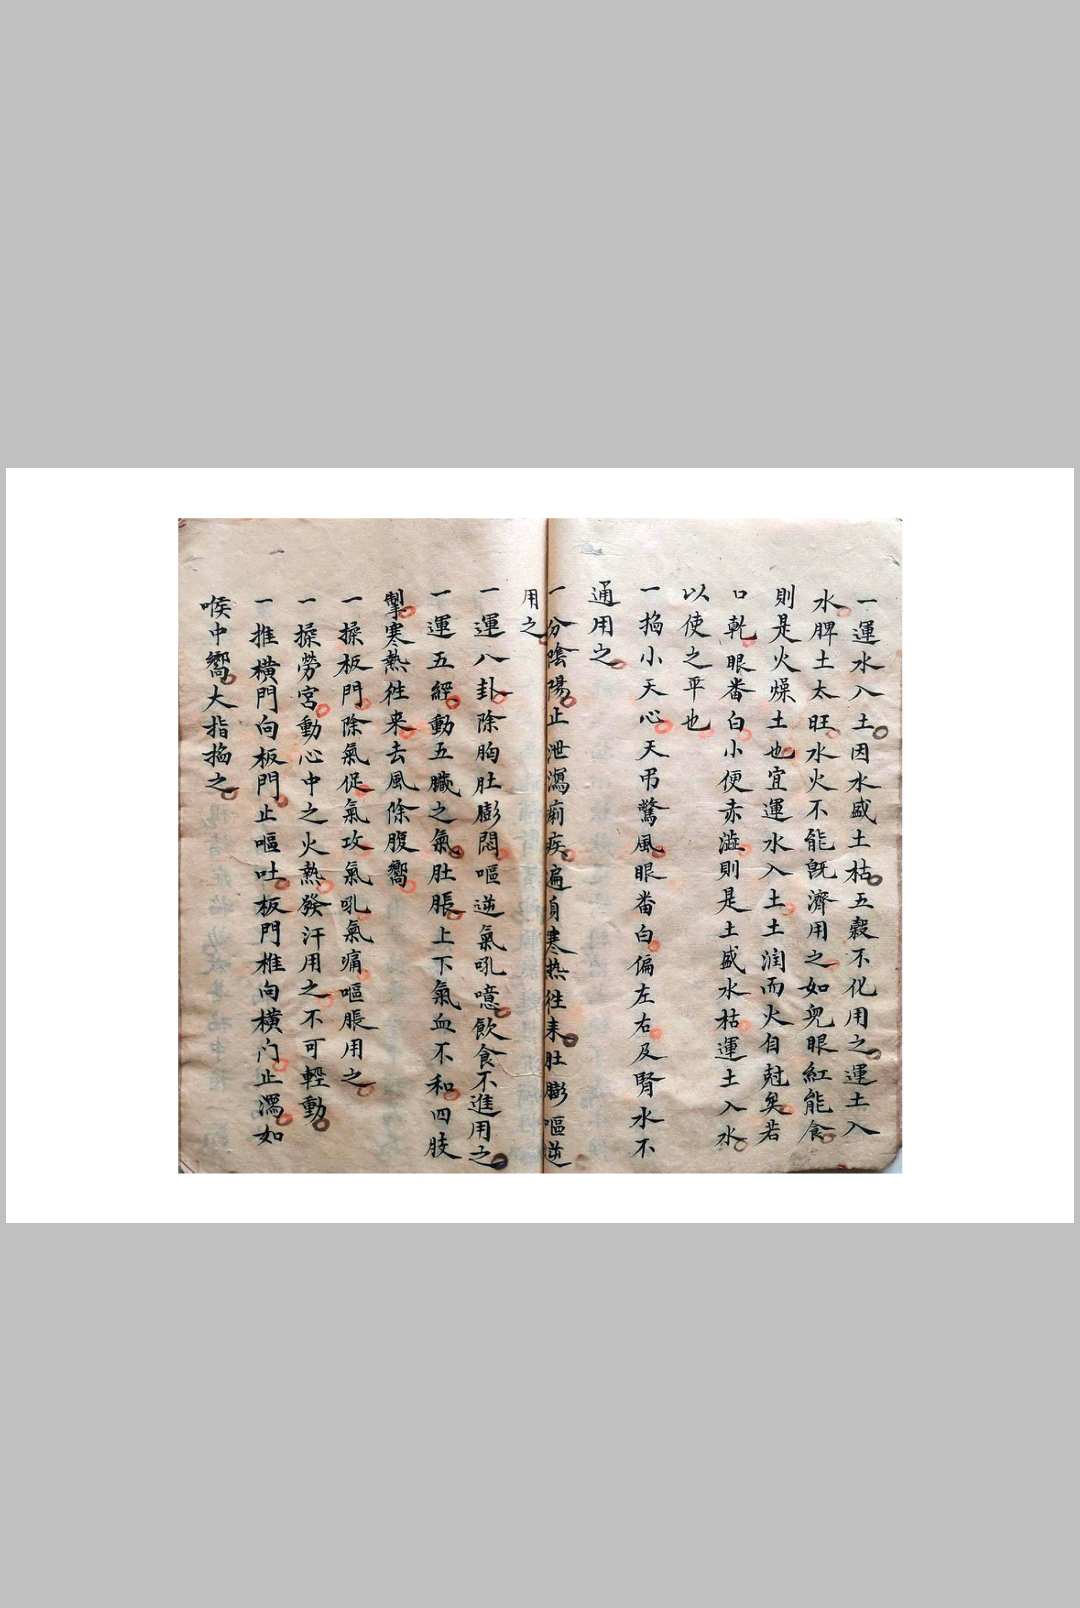 一運水入土因水盛土枯五穀不化用之運土入
水脾土太旺水火不能既濟用之如兒眼紅能食
則是火燥土也宜運水入土土潤而火自尅矣若
口乾眼畨白小便赤澁則是土盛水枯運土入水
以使之平也
一搯小天心天吊驚風眼畨白偏左右及腎水不
通用之
一分陰陽止泄瀉痢疾遍身寒热徃來肚膨嘔逆
用之
一運八卦除胸肚膨悶嘔逆氣吼噫飲食不進用之
一運五經動五臟之氣肚脹上下氣血不和四肢
掣寒熱徃来去風除腹嚮
一揉板門除氣促氣攻氣吼氣痛嘔脹用之
一揉勞宮動心中之火熱發汗用之不可輕動
一推橫門向板門止嘔吐板門推向橫门止瀉如
喉中嚮大指搯之